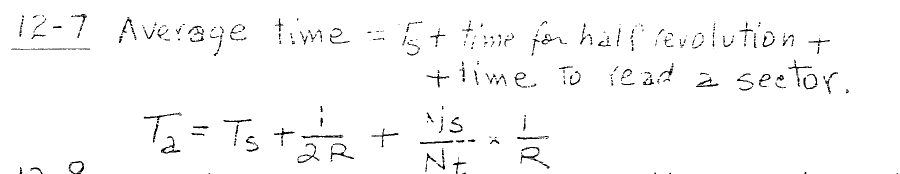 12-7 Average time = Ts + time for half revolution +
+ time to read a sector.
Ta = Ts + 1/2R + Ns/Nt × 1/R